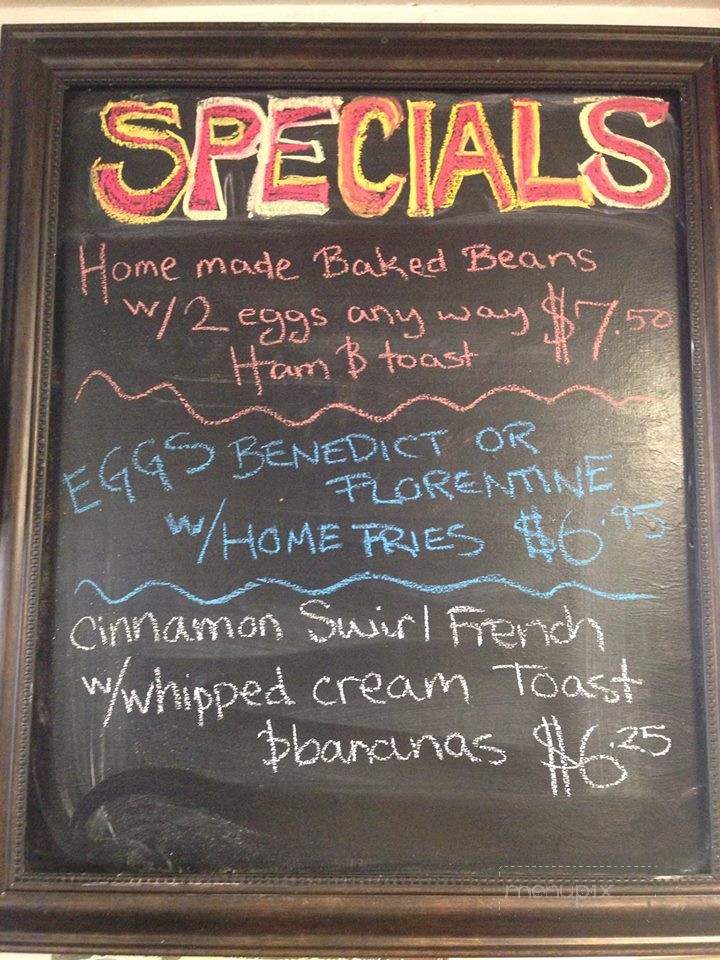 SPECIALS
Home made Baked Beans
w/2 eggs any way $7.50
Ham & toast
EGGS BENEDICT OR
FLORENTINE
w/HOME FRIES $6.95
Cinnamon Swirl French
w/whipped cream Toast
& bananas $6.25
menupix